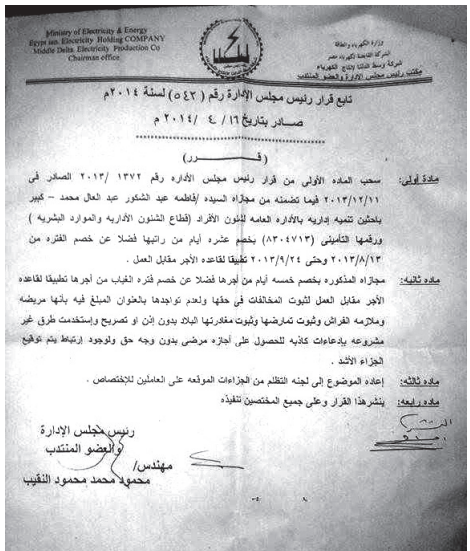 Ministry of Electricity & Energy
Egypt ian. Electricity Holding COMPANY
Middle Delta Electricity Production Co
Chairman office
وزارة الكهرباء والطاقة
الشركة القابضة لكهرباء مصر
شركة وسط الدلتا لانتاج الكهرباء
مكتب رئيس مجلس الإدارة والعضو المنتدب
تابع قرار رئيس مجلس الإدارة رقم (٥٤٣) لسنة ٢٠١٤م
صادر بتاريخ ١٦/ ٤/ ٢٠١٤ م
( قـــــرر )
مادة أولي: سحب الماده الأولي من قرار رئيس مجلس الأداره رقم ١٣٧٢ /٢٠١٣ الصادر فى
٢٠١٣/١٢/١١ فيما تضمنه من مجازاه السيده /فاطمه عبد الشكور عبد العال محمد – كبير
باحثين تنميه إداريه بالأداره العامه لشئون الأفراد (قطاع الشئون الأداريه والموارد البشريه )
ورقمها التأميني (٨٣٠٤٧١٣) بخصم عشره أيام من راتبها فضلا عن خصم الفتره من
٢٠١٣/٨/١٣ وحتى ٢٠١٣/٩/٢٤ تطبيقا لقاعده الأجر مقابل العمل .
ماده ثانيه: مجازاه المذكوره بخصم خمسه أيام من أجرها فضلا عن خصم فتره الغياب من أجرها تطبيقا لقاعده
الأجر مقابل العمل لثبوت المخالفات فى حقها ولعدم تواجدها بالعنوان المبلغ فيه بأنها مريضه
وملازمه الفراش وثبوت تمارضها وثبوت مغادرتها البلاد بدون إذن او تصريح وإستخدمت طرق غير
مشروعه بإدعاءات كاذبه للحصول على أجازه مرضى بدون وجه حق ولوجود إرتباط يتم توقيع
الجزاء الأشد .
ماده ثالثه: إعاده الموضوع إلى لجنه التظلم من الجزاءات الموقعه على العاملين للإختصاص .
ماده رابعه: ينشر هذا القرار وعلى جميع المختصين تنفيذه
رئيس مجلس الإدارة
والعضو المنتدب
مهندس/
محمود محمد محمود النقيب